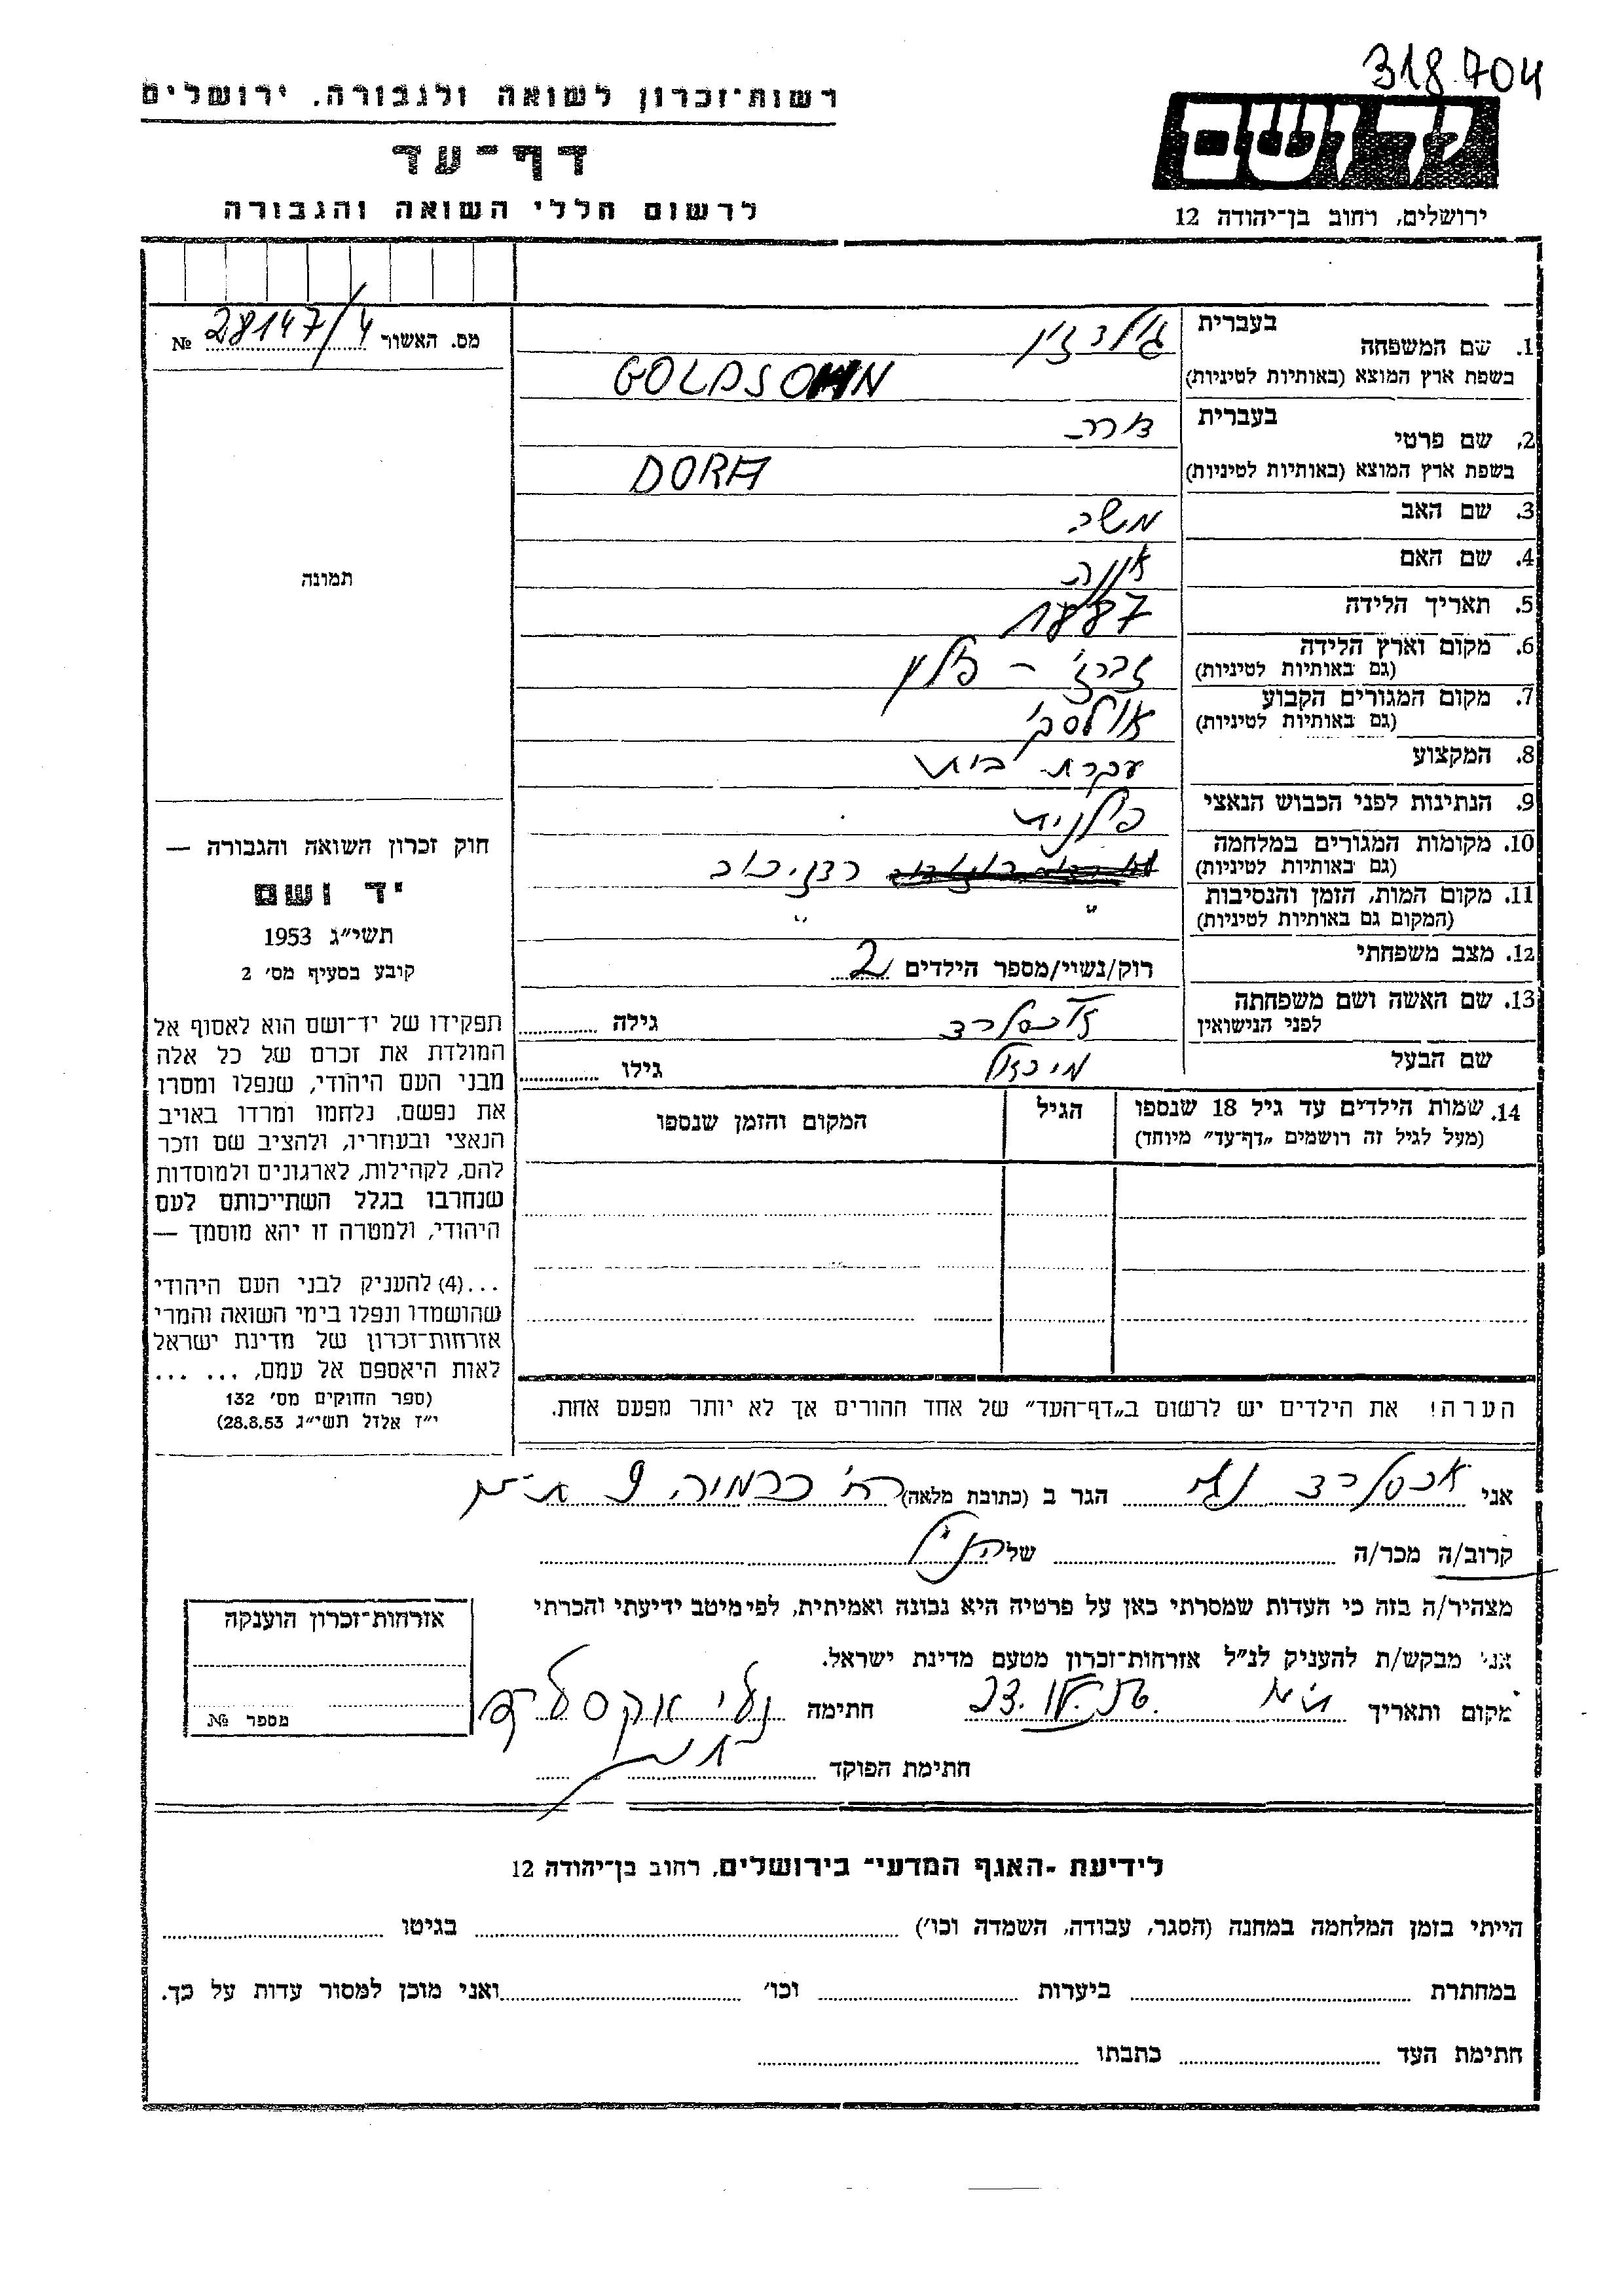 318704
רשות־זכרון לשואה ולגבורה. ירושלים
דף־עד
לרשום חללי השואה והגבורה
יד ושם
ירושלים, רחוב בן־יהודה 12
מס. האשור 28147/4 №
תמונה
חוק זכרון השואה והגבורה —
יד ושם
תשי״ג 1953
קובע בסעיף מס׳ 2
תפקידו של יד־ושם הוא לאסוף אל
המולדת את זכרם של כל אלה
מבני העם היהודי, שנפלו ומסרו
את נפשם, נלחמו ומרדו באויב
הנאצי ובעוזריו, ולהציב שם וזכר
להם, לקהילות, לארגונים ולמוסדות
שנחרבו בגלל השתייכותם לעם
היהודי, ולמטרה זו יהא מוסמך —
...(4) להעניק לבני העם היהודי
שהושמדו ונפלו בימי השואה והמרי
אזרחות־זכרון של מדינת ישראל
לאות היאספם אל עמם, ... ...
(ספר החוקים מס׳ 132
י״ז אלול תשי״ג 28.8.53)
1. שם המשפחה בעברית גולדזון
בשפת ארץ המוצא (באותיות לטיניות) GOLDSOHN
2. שם פרטי בעברית דורה
בשפת ארץ המוצא (באותיות לטיניות) DORA
3. שם האב משה
4. שם האם אננה
5. תאריך הלידה 1887
6. מקום וארץ הלידה
(גם באותיות לטיניות) – פולין
7. מקום המגורים הקבוע
(גם באותיות לטיניות)
8. המקצוע עקרת בית
9. הנתינות לפני הכבוש הנאצי פולנית
10. מקומות המגורים במלחמה
(גם באותיות לטיניות)
11. מקום המות, הזמן והנסיבות
(המקום גם באותיות לטיניות) ״ ״
12. מצב משפחתי רוק/נשוי/מספר הילדים 2
13. שם האשה ושם משפחתה
לפני הנישואין גילה
שם הבעל גילו
14. שמות הילדים עד גיל 18 שנספו הגיל המקום והזמן שנספו
(מעל לגיל זה רושמים „דף־עד״ מיוחד)
הערה! את הילדים יש לרשום ב„דף־העד״ של אחד ההורים אך לא יותר מפעם אחת.
אני הגר ב (כתובת מלאה) רח׳ 9
קרוב/ה מכר/ה של הנ״ל
מצהיר/ה בזה כי העדות שמסרתי כאן על פרטיה היא נכונה ואמיתית, לפי מיטב ידיעתי והכרתי
אני מבקש/ת להעניק לנ״ל אזרחות־זכרון מטעם מדינת ישראל.
מקום ותאריך חתימה נלי אקסלרד
חתימת הפוקד
אזרחות־זכרון הוענקה
מספר №
לידיעת „האגף המדעי״ בירושלים, רחוב בן־יהודה 12
הייתי בזמן המלחמה במחנה (הסגר, עבודה, השמדה וכו׳) בגיטו
במחתרת ביערות וכו׳ ואני מוכן למסור עדות על כך.
חתימת העד כתבתו